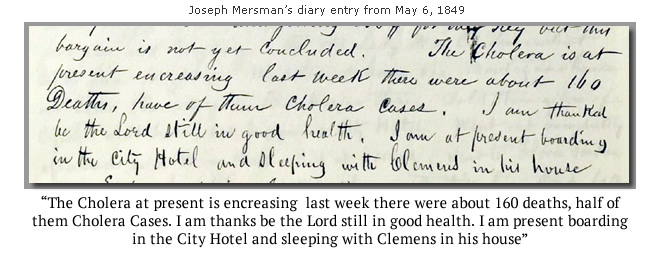 Joseph Mersman's diary entry from May 6, 1849
but this
bargain is not yet concluded. The Cholera is at
present encreasing last week there were about 160
Deaths, have of them Cholera Cases. I am thanked
be the Lord still in good health. I am at present boarding
in the City Hotel and sleeping with Clemens in his house
“The Cholera at present is encreasing last week there were about 160 deaths, half of
them Cholera Cases. I am thanks be the Lord still in good health. I am present boarding
in the City Hotel and sleeping with Clemens in his house”